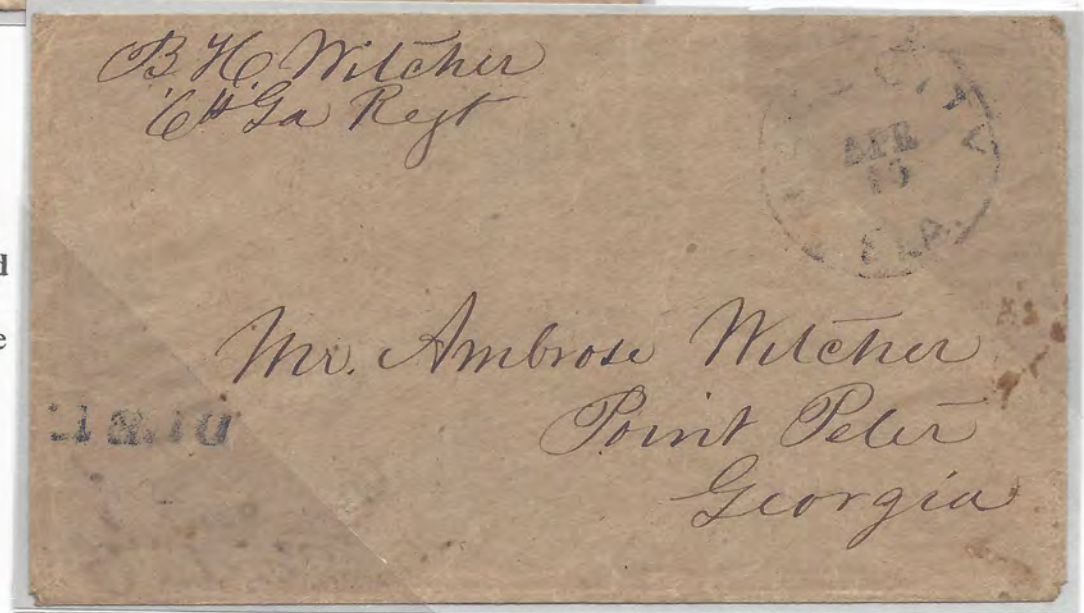 B. H. Witcher
6th Ga Regt
CITY
APR
15
FLA.
Mr. Ambrose Witcher
Point Peter
Georgia
d
e